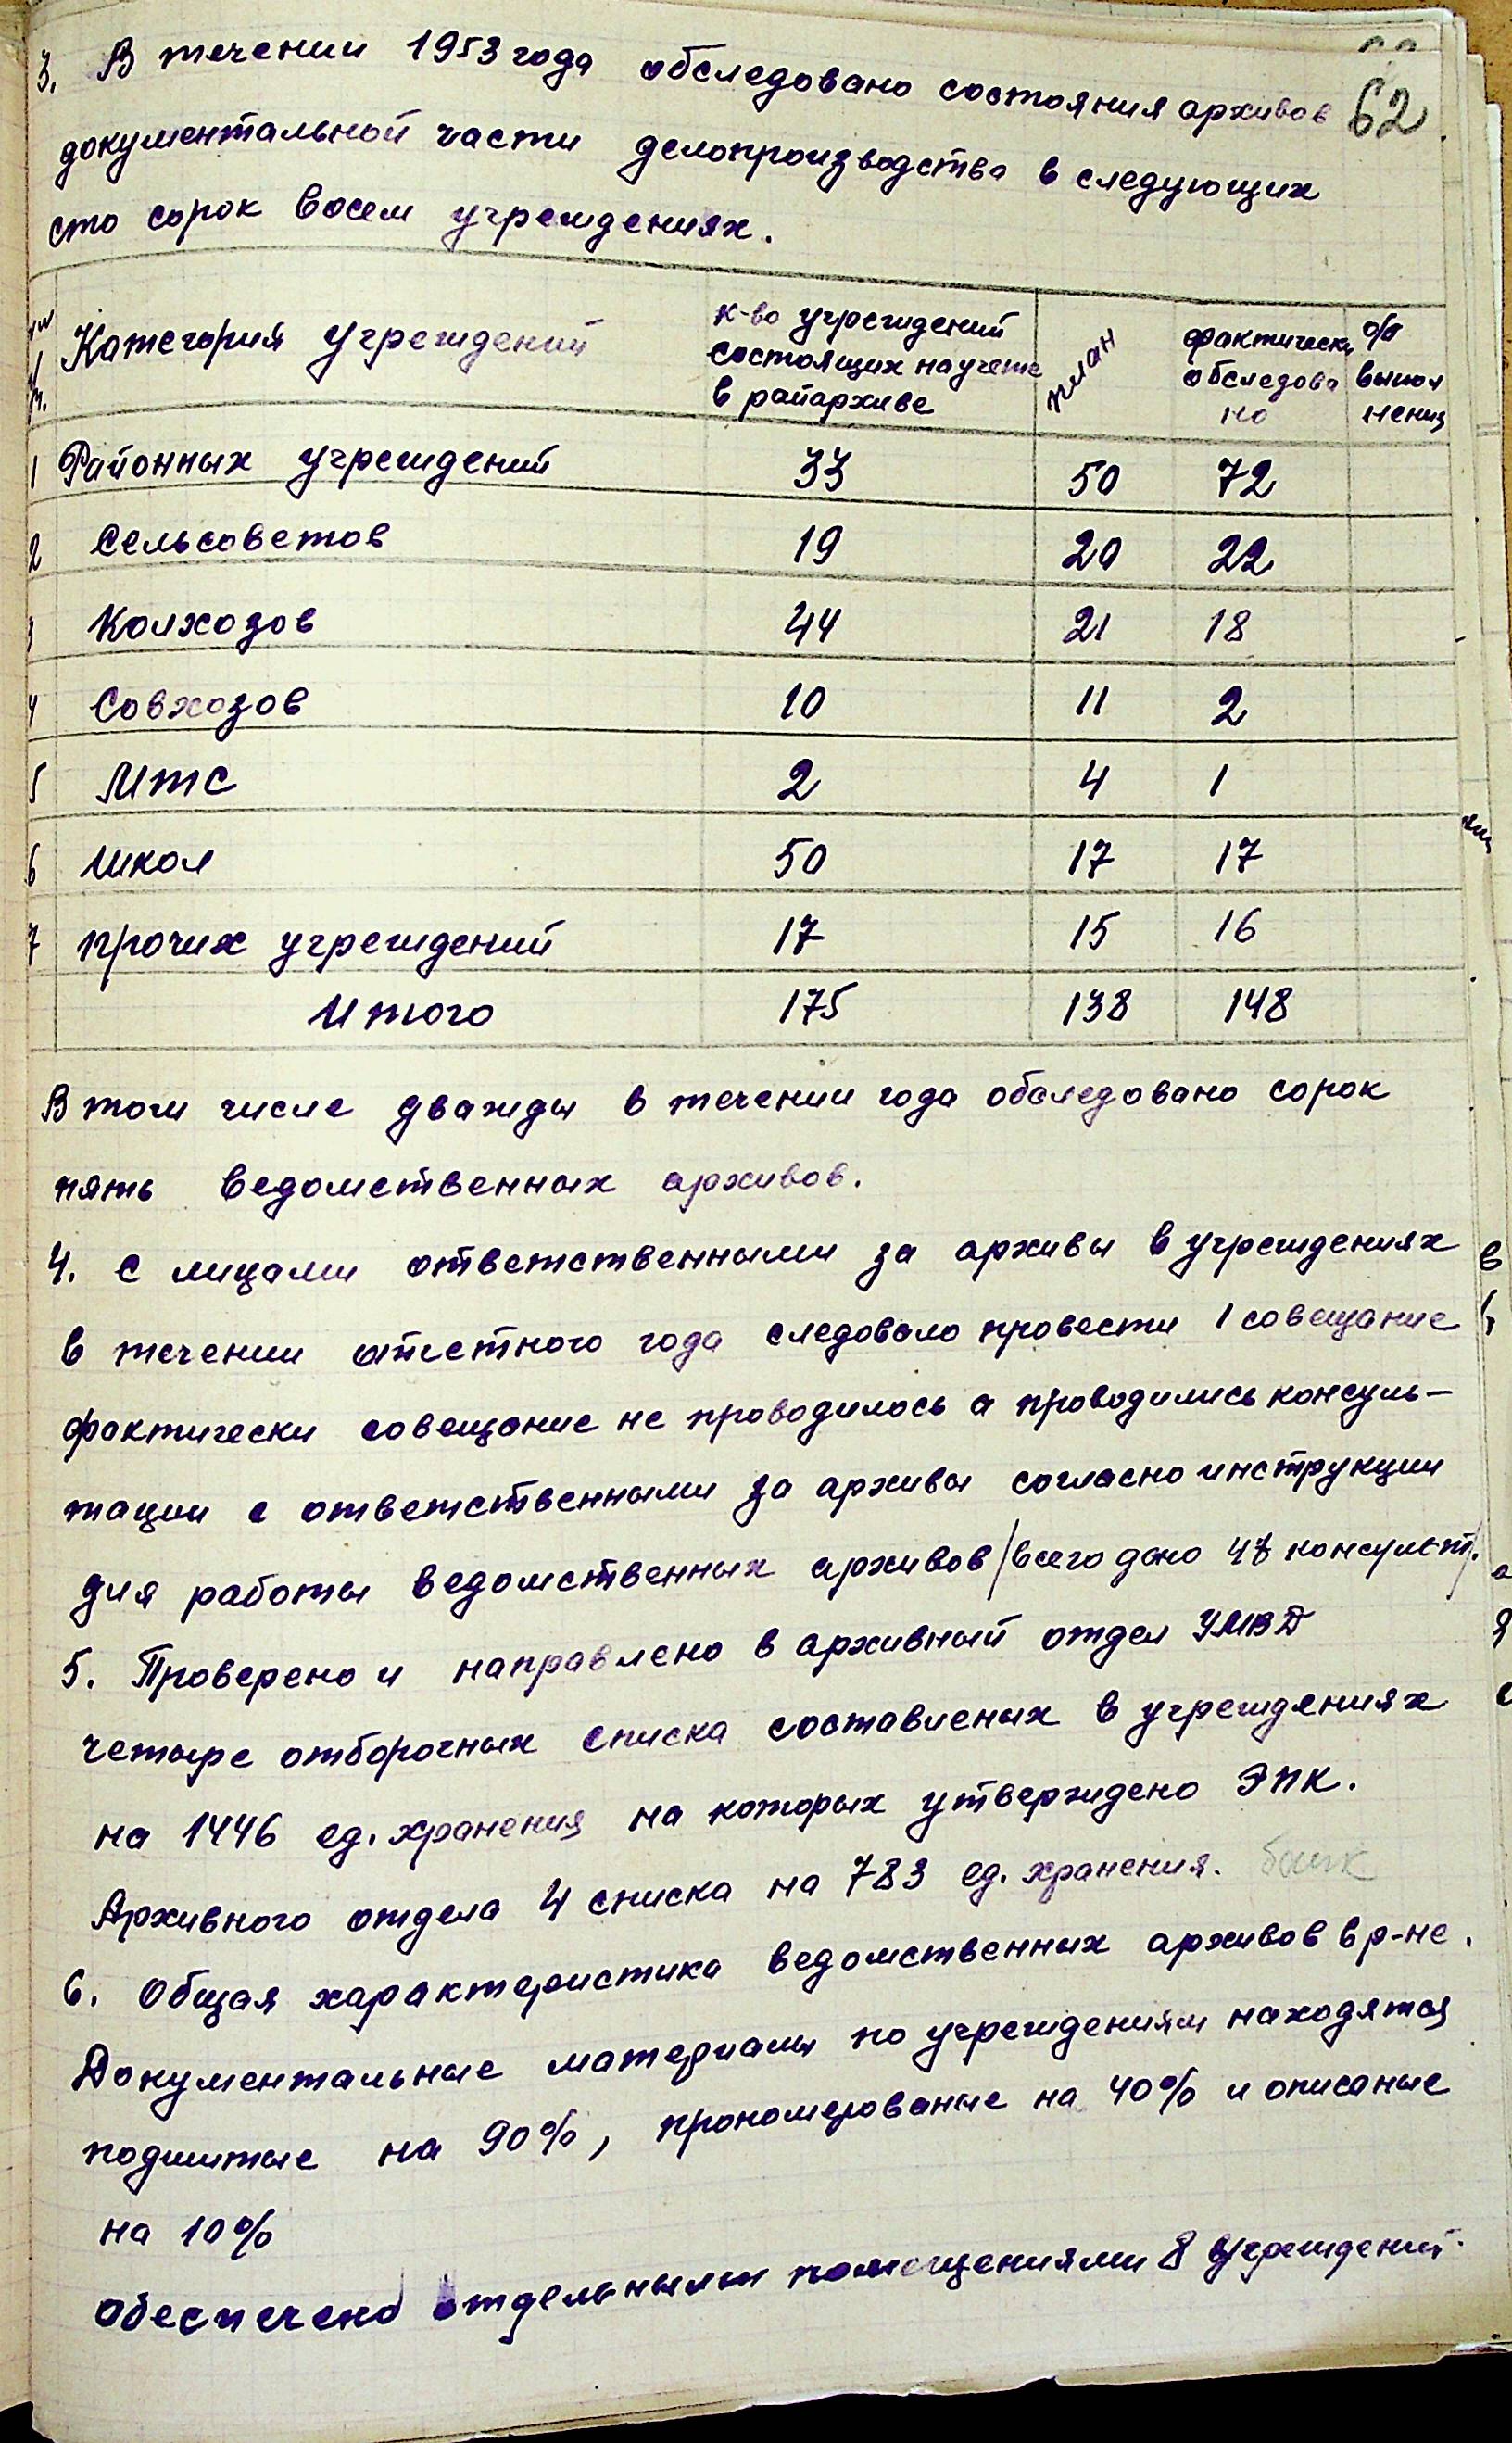 62
3. В течении 1953 года обследовано состояния архивов
документальной части делопроизводства в следующих
сто сорок восем учреждениях.
Категория учреждений | к-во учреждений состоящих на учете в райархиве | план | фактически обследовано | % выполнения
1 Районных учреждений 33 50 72
2 Сельсоветов 19 20 22
3 Колхозов 44 21 18
4 Совхозов 10 11 2
5 МТС 2 4 1
6 Школ 50 17 17
7 прочих учреждений 17 15 16
Итого 175 138 148
В том числе дважды в течении года обследовано сорок
пять ведомственных архивов.
4. С лицами ответственными за архивы в учреждениях
в течении отчетного года следовало провести 1 совещание
фактически совещание не проводилось а проводились консуль-
тации с ответственными за архивы согласно инструкции
для работы ведомственных архивов /всего дано консульт./
5. Проверено и направлено в архивный отдел УМВД
четыре отборочных списка составленых в учреждениях
на 1446 ед. хранения на которых утверждено ЭПК.
Архивного отдела 4 списка на 783 ед. хранения.
6. Общая характеристика ведомственных архивов в р-не.
Документальные материалы по учреждениям находятся
подшитые на 90%, прономерованые на 40% и описаные
на 10%
Обеспечено отдельными помещениями 8 учреждений.